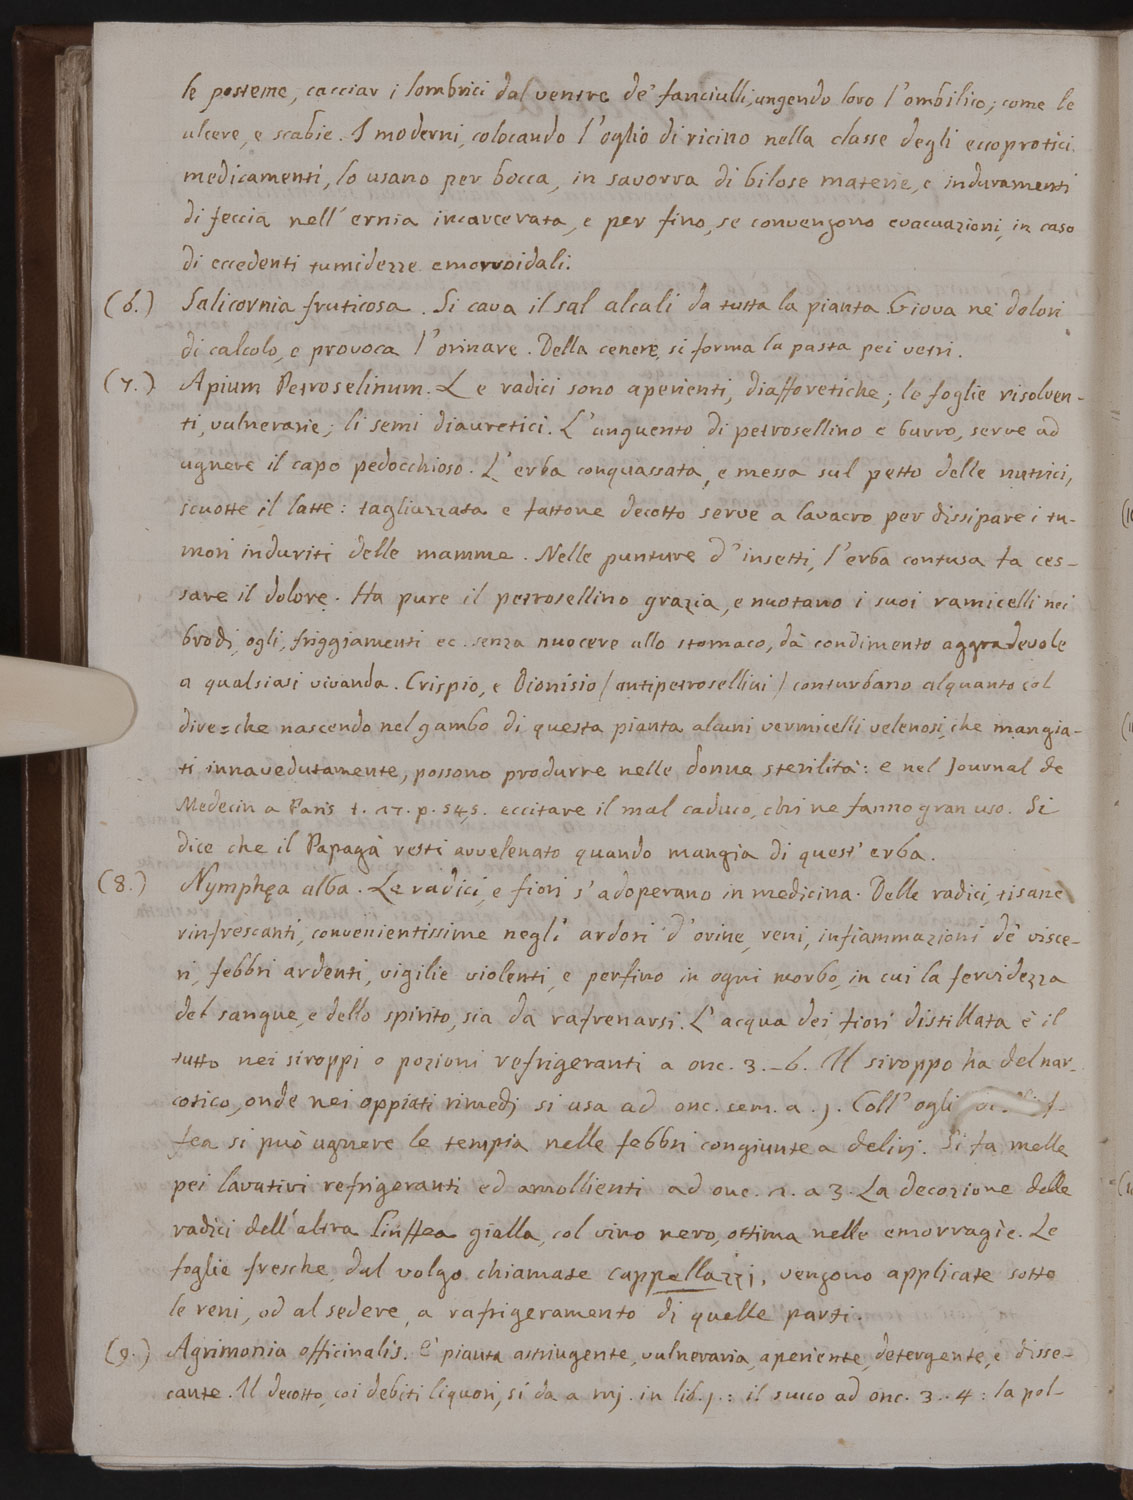 le posteme, cacciar i lombrici dal ventre de' fanciulli, ungendo loro l'ombilico; come le
ulcere, e scabie. I moderni, colocando l'oglio di ricino nella classe degli eccoprotici
medicamenti, lo usano per bocca, in savorra di bilose materie, e induramenti
di feccia nell'ernia incarcerata, e per fino, se convengono evacuazioni, in caso
di eccedenti tumidezze emorroidali.
(6.) Salicornia fruticosa. Si cava il sal alcali da tutta la pianta. Giova ne' dolori
di calcolo, e provoca l'orinare. Della cenere, si forma la pasta pei vetri.
(7.) Apium Petroselinum. Le radici sono aperienti, diafforetiche; le foglie risolven-
ti, vulnerarie; li semi diauretici. L'unguento di petrosellino e burro, serve ad
ugnere il capo pedocchioso. L'erba conquassata, e messa sul petto delle nutrici,
scuotte il latte: tagliuzzata e fattone decotto serve a lavacro per dissipare i tu-
mori induriti delle mamme. Nelle punture d'insetti, l'erba contusa fa ces-
sare il dolore. Ha pure il petrosellino grazia, e nuotano i suoi ramicelli nei
brodi, ogli, friggiamenti ec. senza nuocere allo stomaco, dà condimento aggradevole
a qualsiasi vivanda. Crispio, e Dionisio (antipetrosellini) conturbano alquanto col
dire=che nascendo nel gambo di questa pianta alcuni vermicelli velenosi, che mangia-
ti innavedutamente, possono produrre nelle donne sterilità: e nel Journal de
Medecin a Paris t. 17. p. 545. eccitare il mal caduco, chi ne fanno gran uso. Si
dice che il Papagà resti avvelenato quando mangia di quest'erba.
(8.) Nymphęa alba. Le radici, e fiori s'adoperano in medicina. Delle radici, tisane
rinfrescanti, convenientissime negli ardori d'orine, reni, infiammazioni de' visce-
ri, febbri ardenti, vigilie violenti, e perfino in ogni morbo, in cui la fervidezza
del sangue, e dello spirito, sia da rafrenarsi. L'acqua dei fiori distillata è il
tutto nei siroppi o pozioni refrigeranti a onc. 3.-6. Il siroppo ha del nar-
cotico, onde nei oppiati rimedj si usa ad onc. sem. a .j. Coll' ogli
fea si può ugnere le tempia nelle febbri congiunte a delirj. Si fa melle
pei lavativi refrigeranti ed amollienti ad onc. n. a 3. La decozione delle
radici dell'altra Linffea gialla, col vino nero, ottima nelle emorragie. Le
foglie fresche, dal volgo chiamate cappellazzi, vengono applicate sotto
le reni, od al sedere, a rafrigeramento di quelle parti.
(9.) Agrimonia officinalis. È pianta astringente, vulneraria, aperiente, detergente, e disse-
cante. Il decotto, coi debiti liquori, si da a mj. in lib. j.: il succo ad onc. 3..4: la pol-